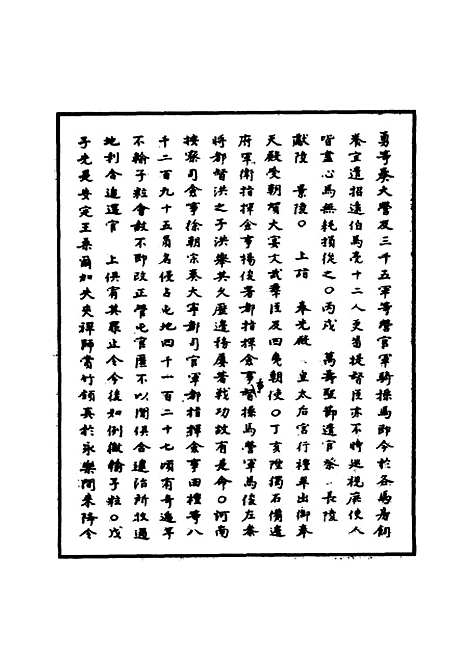 勇等奏大營及三千五軍等營官軍騎操馬即今於各馬房飼
養宜選招遠伯馬亮十二人更番提督臣亦不時巡視庶使人
皆盡心馬無耗損從之○丙戌　萬壽聖節遣官祭　長陵
獻陵　景陵○　上詣　奉先殿　皇太后宮行禮畢出御奉
天殿受朝賀大宴文武羣臣及四夷朝使○丁亥陞獨石備邊
府軍衛指揮僉事楊俊署都指揮僉事督操馬營軍馬俊左參
將都督洪之子洪舉其久歷邊務屢著戰功故有是命○河南
按察司僉事徐朝宗奏大寧都司官軍都指揮僉事田禮等八
千二百九十五員名侵占屯地四千一百二十七頃有奇遞年
不輸子粒會赦不即改正管屯官匿不以聞俱合逮治所收過
地利合追還官　上俱宥其罪止令今後如例徵輸子粒○戊
子先是安定王桑爾加失夾禪師賞竹領真於永樂間來降令